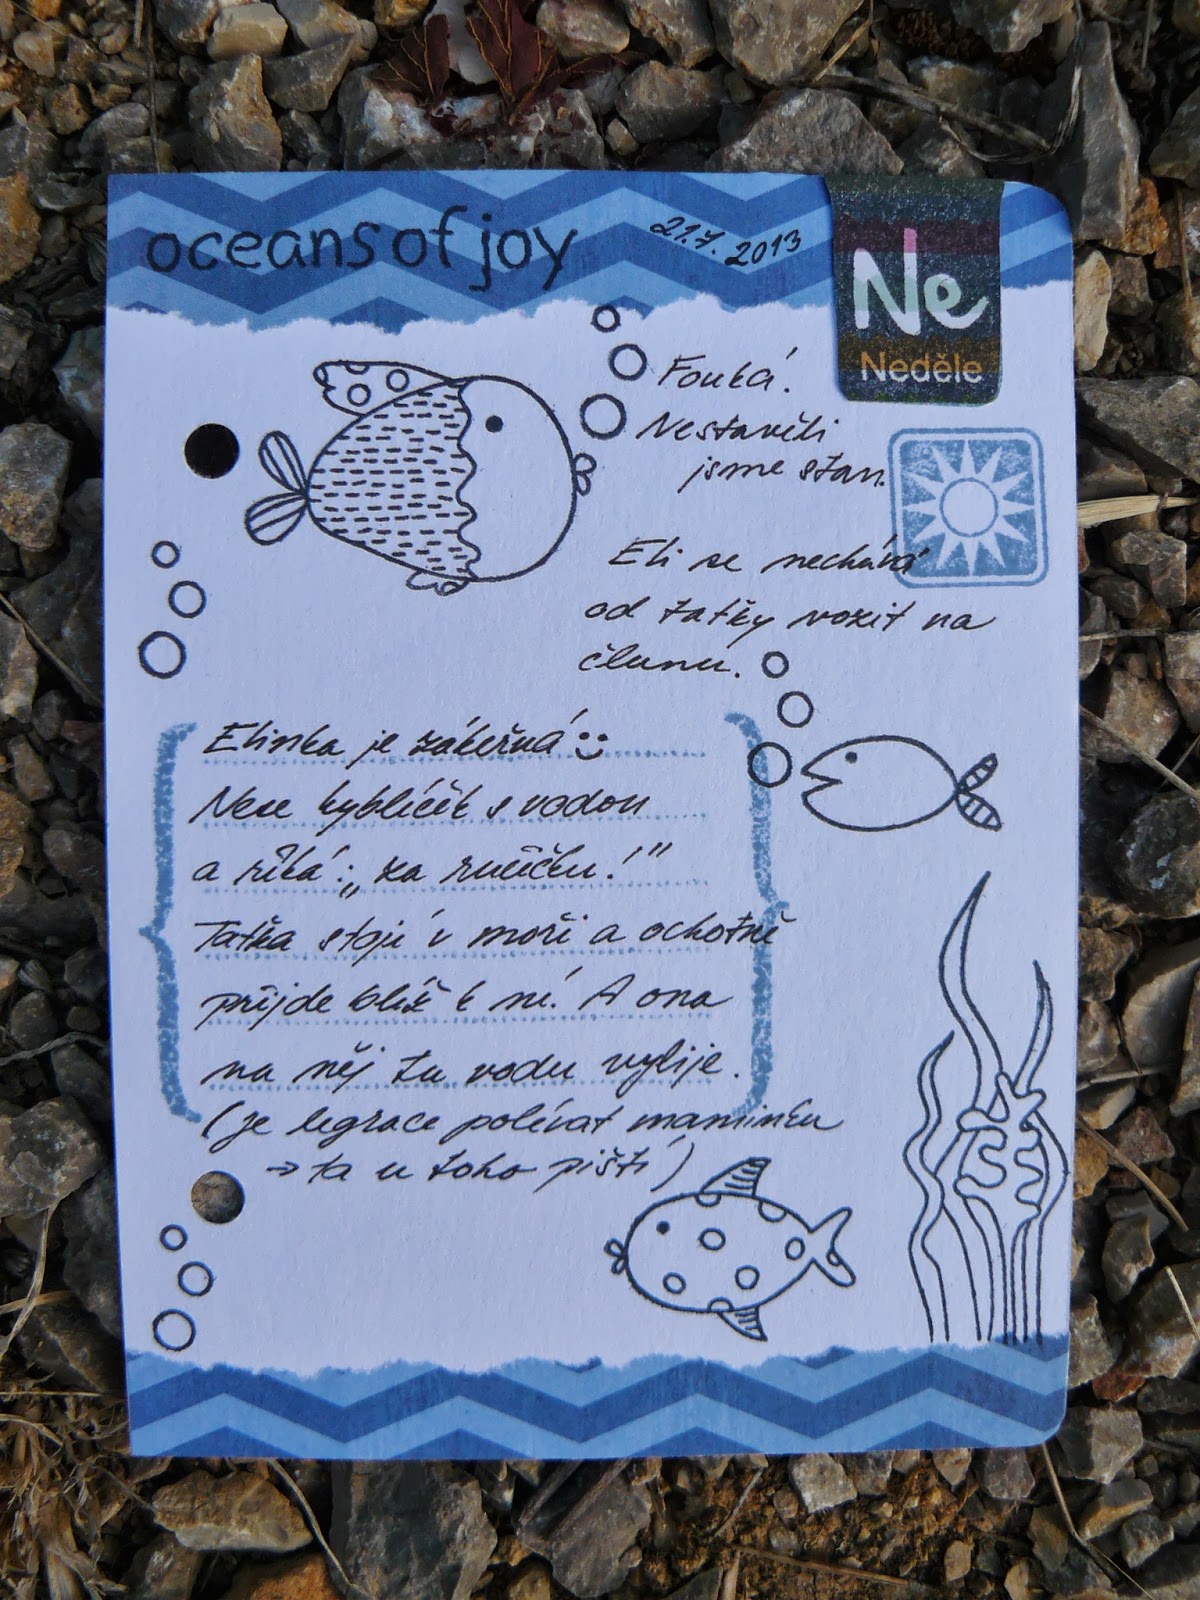 oceans of joy
21.7. 2013
Ne
Neděle
Fouká.
Nestavěli
jsme stan.
Eli se nechává
od taťky vozit na
člunu.
Elinka je zákeřná :)
Nese kyblíček s vodou
a říká: „za ručičku!"
Taťka stojí v moři a ochotně
přijde blíž k ní. A ona
na něj tu vodu vylije.
(je legrace polévat maminku
→ ta u toho piští)